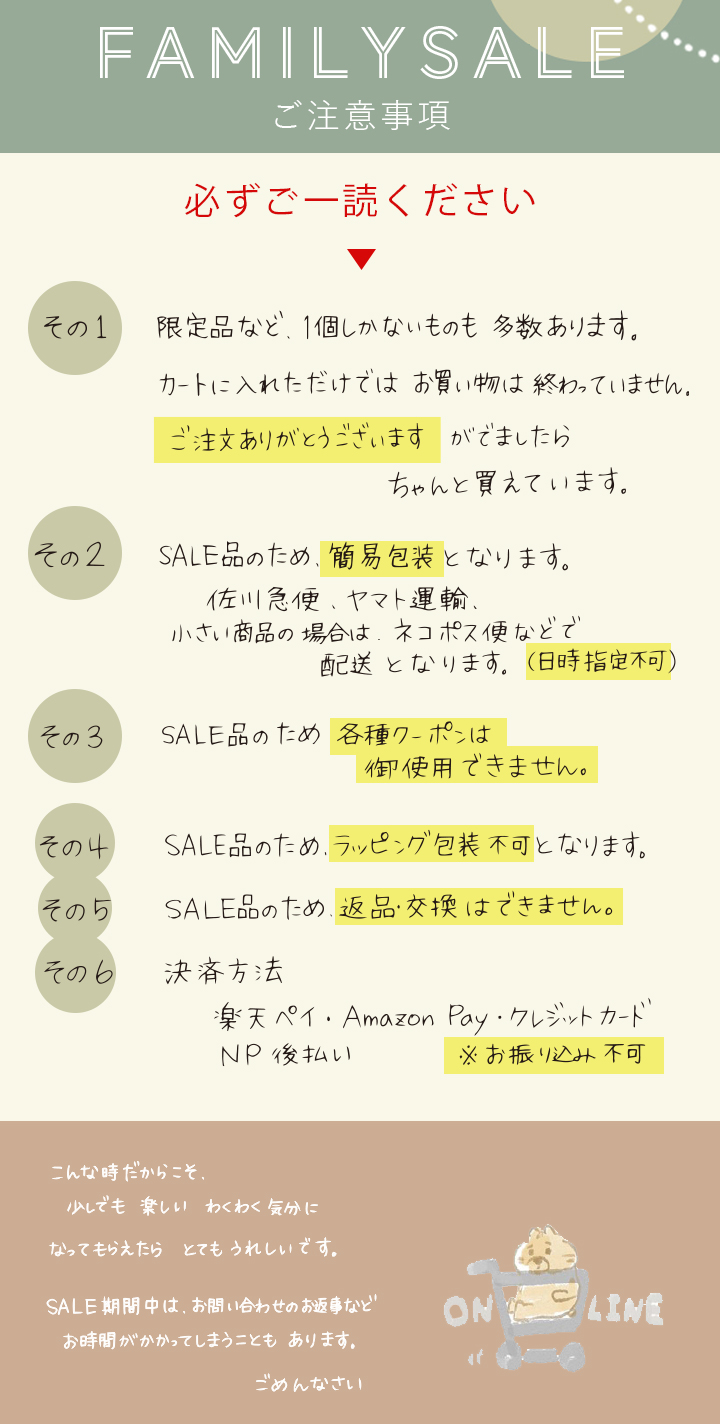 FAMILYSALE
ご注意事項
必ずご一読ください
その1
限定品など、1個しかないものも 多数あります。
カートに入れただけでは お買い物は 終わっていません。
ご注文ありがとうございます がでましたら
ちゃんと買えています。
その2
SALE品のため、簡易包装となります。
佐川急便、ヤマト運輸、
小さい商品の場合は、ネコポス便などで
配送 となります。(日時指定不可)
その3
SALE品のため 各種クーポンは
御使用できません。
その4
SALE品のため、ラッピング包装不可となります。
その5
SALE品のため、返品・交換はできません。
その6
決済方法
楽天ペイ・Amazon Pay・クレジットカード
NP後払い ※お振り込み不可
こんな時だからこそ、
少しでも 楽しい わくわく気分に
なってもらえたら とても うれしいです。
SALE期間中は、お問い合わせのお返事など
お時間がかかってしまうことも あります。
ごめんなさい
ONLINE